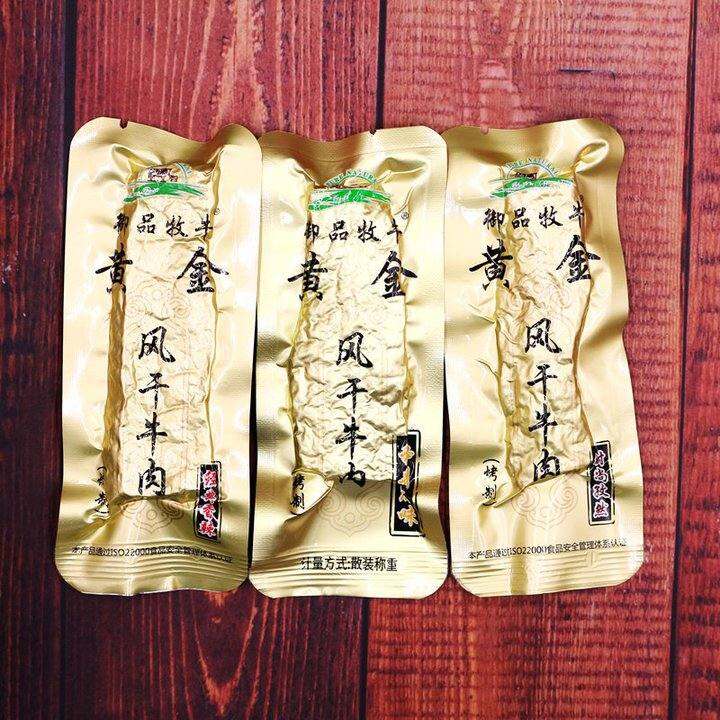 御品牧牛®
黄金
风干牛肉
(烤制)
经典香辣
本产品通过ISO22000食品安全管理体系认证
PURE NATURAL
御品牧牛
黄金
风干牛肉
(烤制)
计量方式:散装称重
御品牧牛®
黄金
风干牛肉
(烤制)
时尚孜然
本产品通过ISO22000食品安全管理体系认证